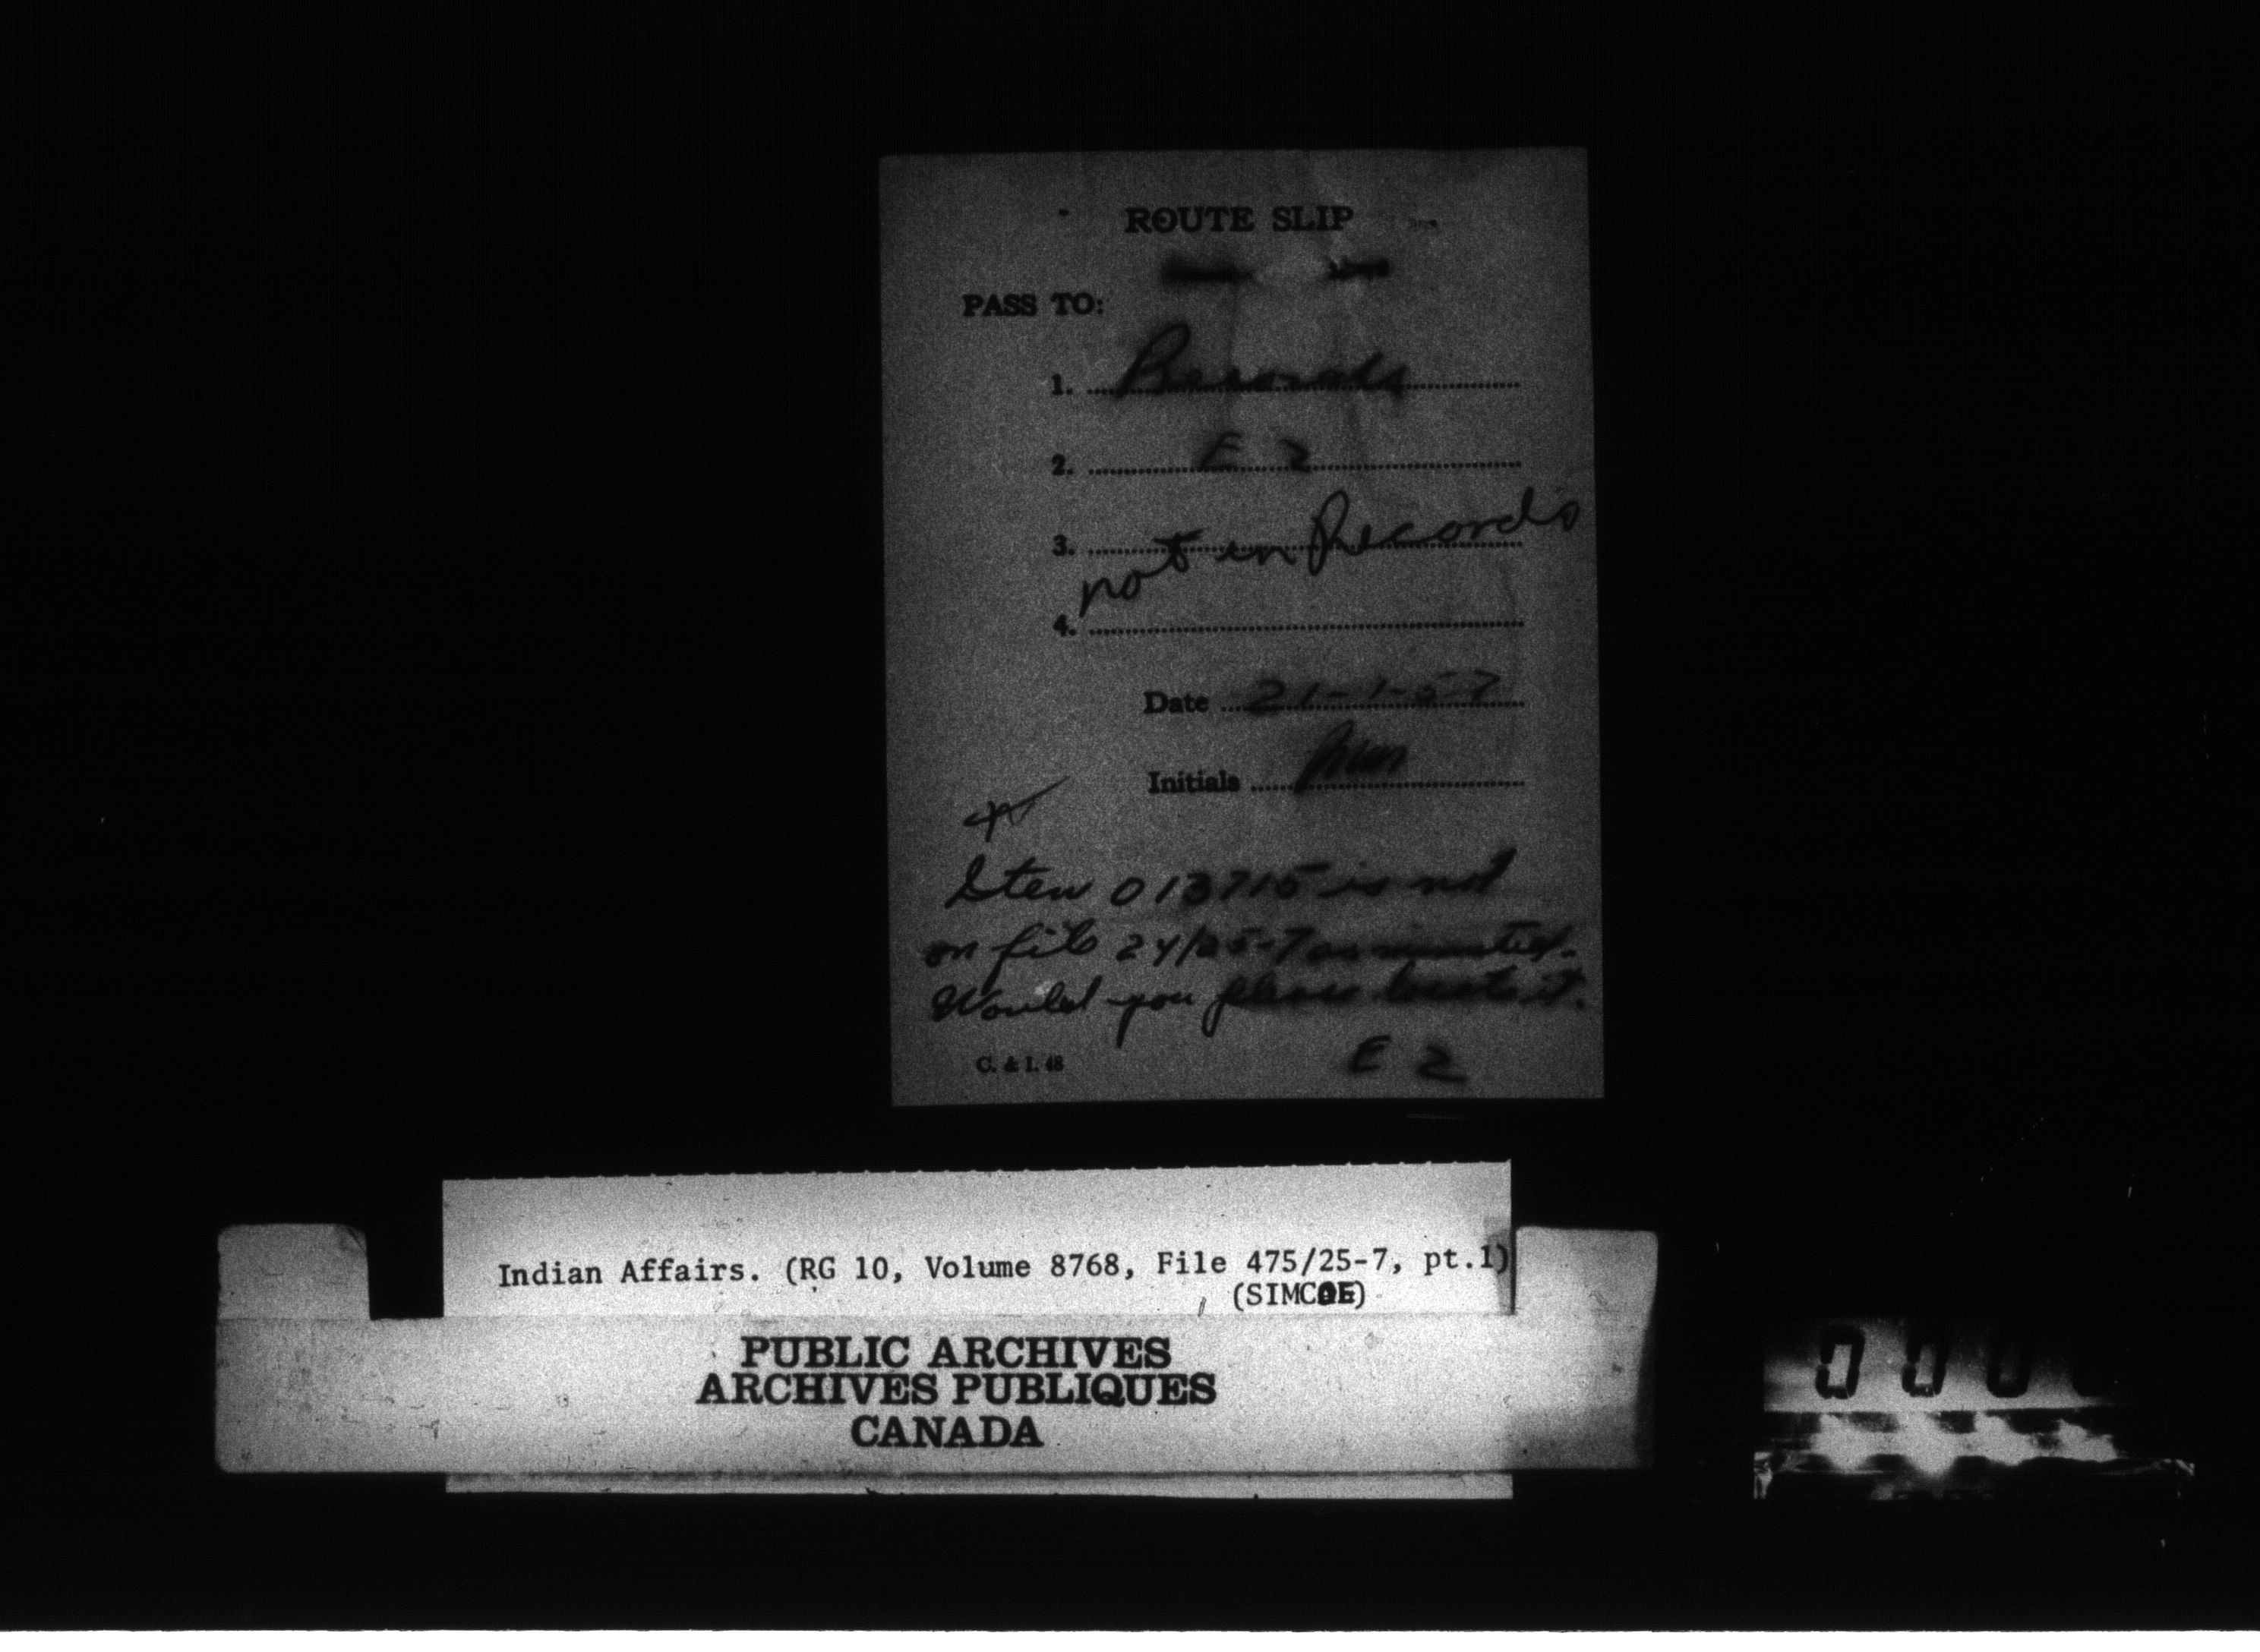 ROUTE SLIP
PASS TO:
1. Records
2. E 2
3. not in Records
4.
Date 21-1-57
Initials
Item 013715 is not
on file 24/25-7 as minuted.
Would you please locate it.
E 2
C. & I. 48
Indian Affairs. (RG 10, Volume 8768, File 475/25-7, pt.1)
(SIMCOE)
PUBLIC ARCHIVES
ARCHIVES PUBLIQUES
CANADA
0 0 0